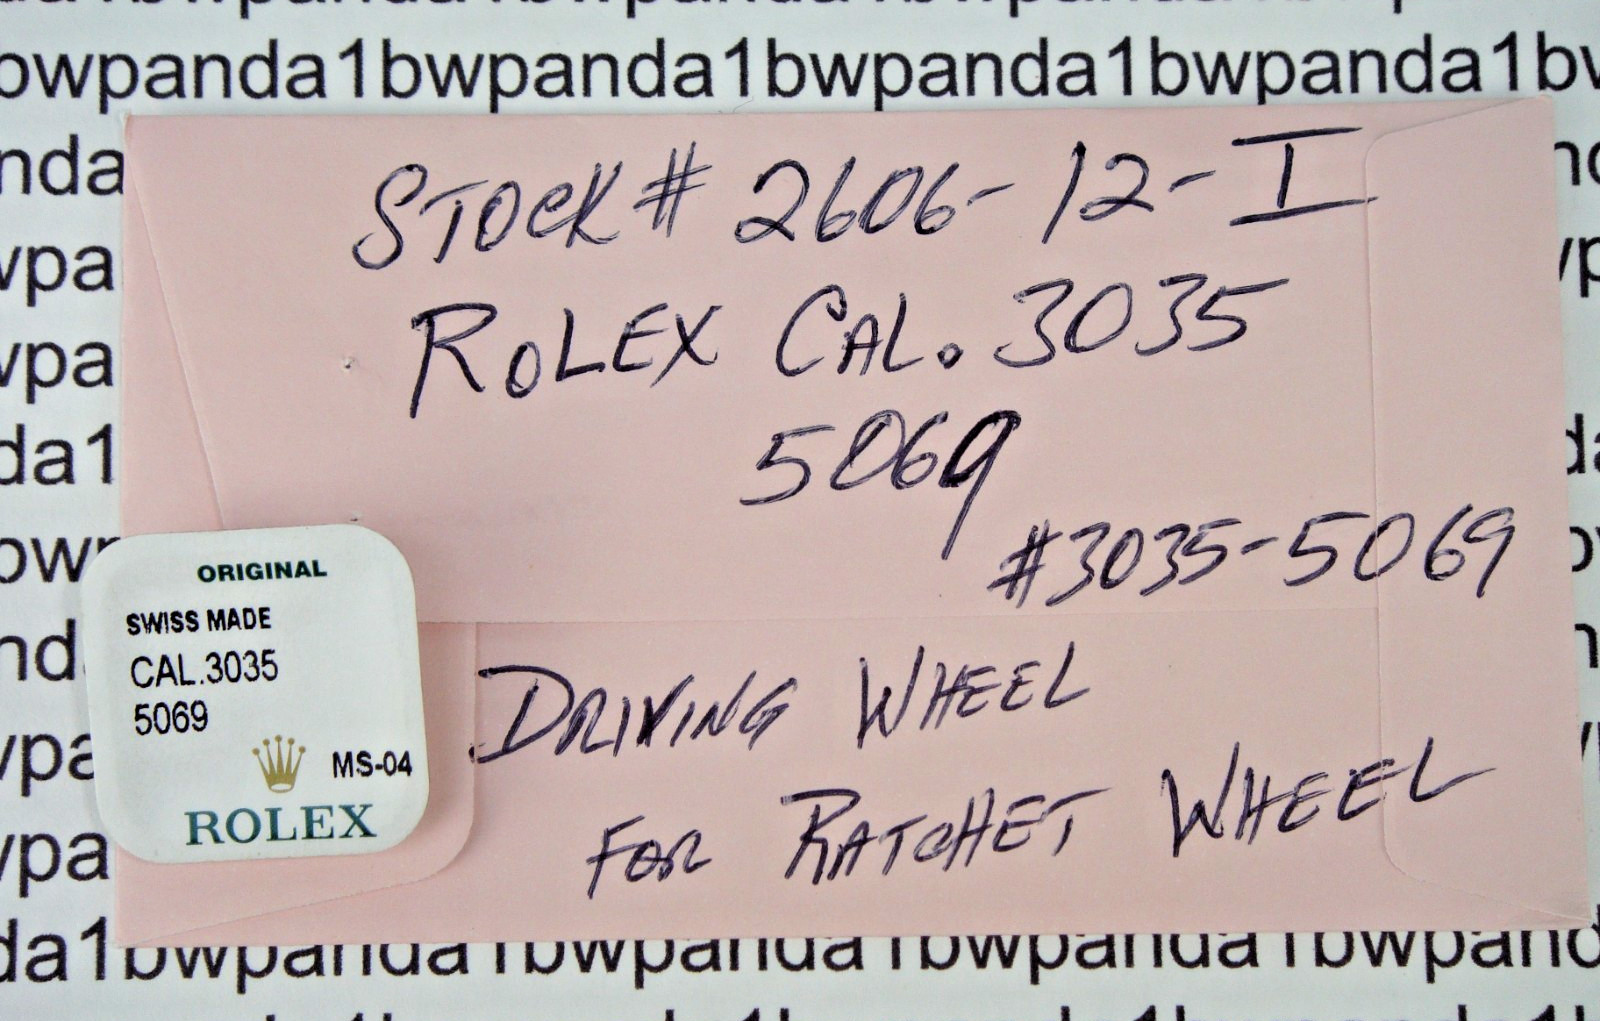 bwpanda1bwpanda1bwpanda1bwpanda1bw
nda
wpa
wpa
da1
bw
nd
wpa
wpa
STOCK # 2606-12-I
ROLEX CAL. 3035
5069
#3035-5069
DRIVING WHEEL
FOR RATCHET WHEEL
ORIGINAL
SWISS MADE
CAL.3035
5069
MS-04
ROLEX
da1bwpanda1bwpanda1bwpanda1bwpand